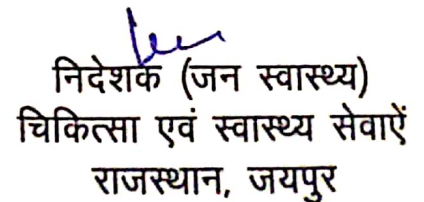 निदेशक (जन स्वास्थ्य)
चिकित्सा एवं स्वास्थ्य सेवाऐं
राजस्थान, जयपुर